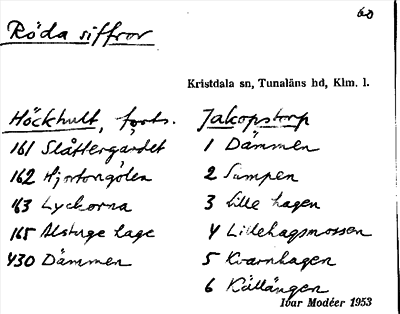 60
Röda siffror
Kristdala sn, Tunaläns hd, Klm. l.
Höckhult, forts.
161 Slåttergärdet
162 Hjortongölen
163 Lyckorna
165 Alstuge hage
430 Dämmen
Jakopstorp
1 Dämmen
2 Sumpen
3 Lille hagen
4 Lillehagsmossen
5 Kvarnhagen
6 Källängen
Ivar Modéer 1953